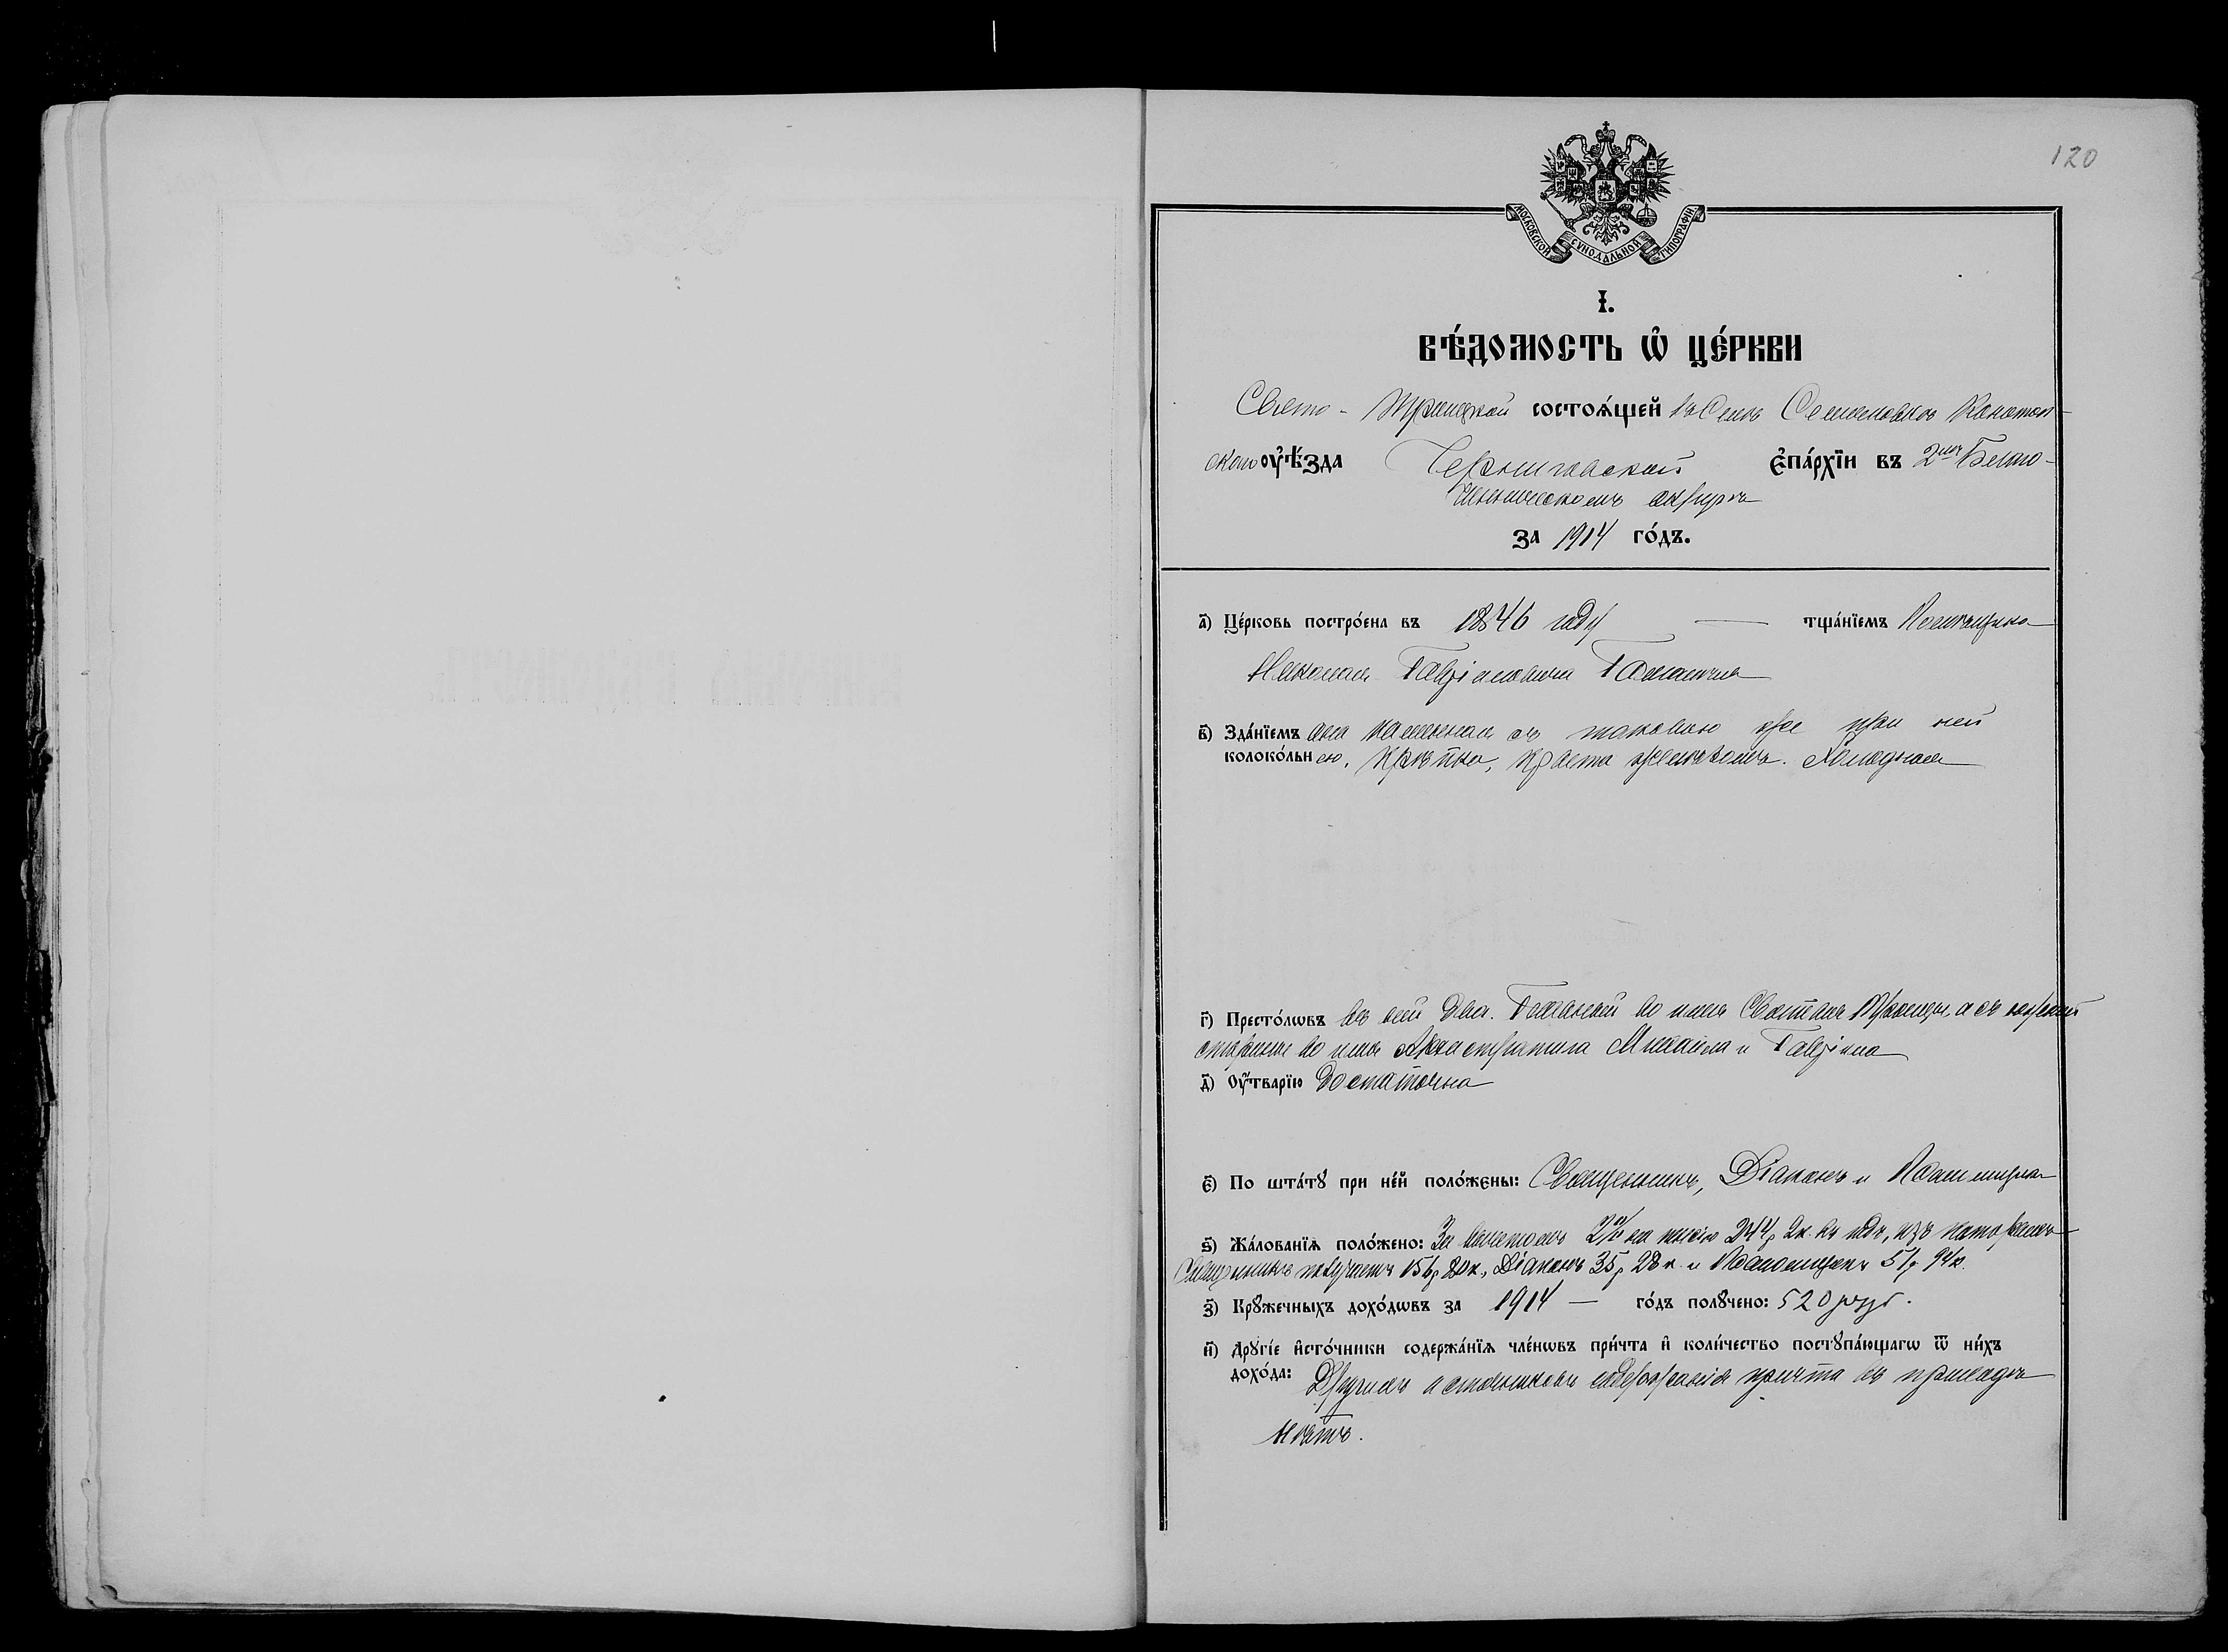 120
МОСКОВСКОЙ СѴНОДАЛЬНОЙ ТИПОГРАФІИ
І.
ВѢ́ДОМОСТЬ Ѡ҆ ЦЕ́РКВИ
Свято-Троицкой состоѧ́щей въ Селѣ Семеновкѣ Конотоп-
скаго оу҆ѣ́зда Черниговской є҆па́рхїи въ 2мъ
округѣ
за 1914 го́дъ.
а҃) Це́рковь постро́ена въ 1846 году — тща́нїемъ Помѣщика
Николая Гавріиловича
в҃) Зда́нїемъ она каменная съ таковою же при ней
колоко́льнею, крѣпка, крыта желѣзомъ. Холодная
г҃) Престо́лѡвъ въ ней два. Главный во имя Святыя Троицы, а съ
стороны во имя Архистратига Михаила и Гавріила
д҃) Оу҆́тварїю достаточна
є҃) По шта́тꙋ при не́й поло́жены: Священникъ, Діаконъ и Псаломщикъ
ѕ҃) Жа́лованїѧ поло́жено: За вычетомъ 2% на пенсію 244 р. 2 к. въ годъ, изъ
Священникъ получаетъ 156 р. 80 к., Діаконъ 35 р. 28 к. и Псаломщикъ 51 р. 94 к.
з҃) Крꙋжечныхъ дохо́дѡвъ за 1914 — го́дъ полꙋчено: 520 руб.
и҃) Дрꙋгі́е и҆сто́чники содержа́нїѧ чле́нѡвъ при́чта и҆ коли́чество постꙋпа́ющагѡ ѿ ни́хъ
дохо́да: Другихъ источниковъ содержанія причта въ приходѣ
нѣтъ.